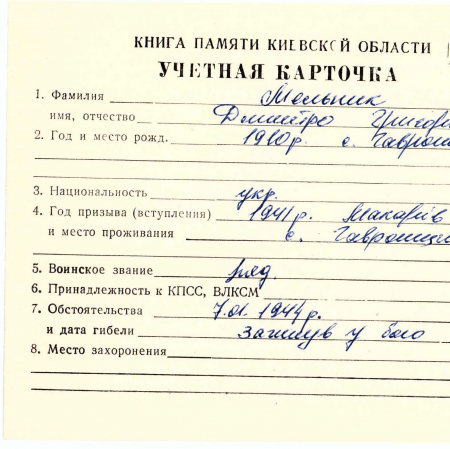 КНИГА ПАМЯТИ КИЕВСКОЙ ОБЛАСТИ
УЧЕТНАЯ КАРТОЧКА
1. Фамилия Мельник
имя, отчество Дмитро Григорі
2. Год и место рожд. 1910р. с. Гаврони
3. Национальность укр.
4. Год призыва (вступления) 1941р. Макарів
и место проживания с. Гавронщи
5. Воинское звание ряд.
6. Принадлежность к КПСС, ВЛКСМ
7. Обстоятельства 7.01.1944р.
и дата гибели загинув у бою
8. Место захоронения